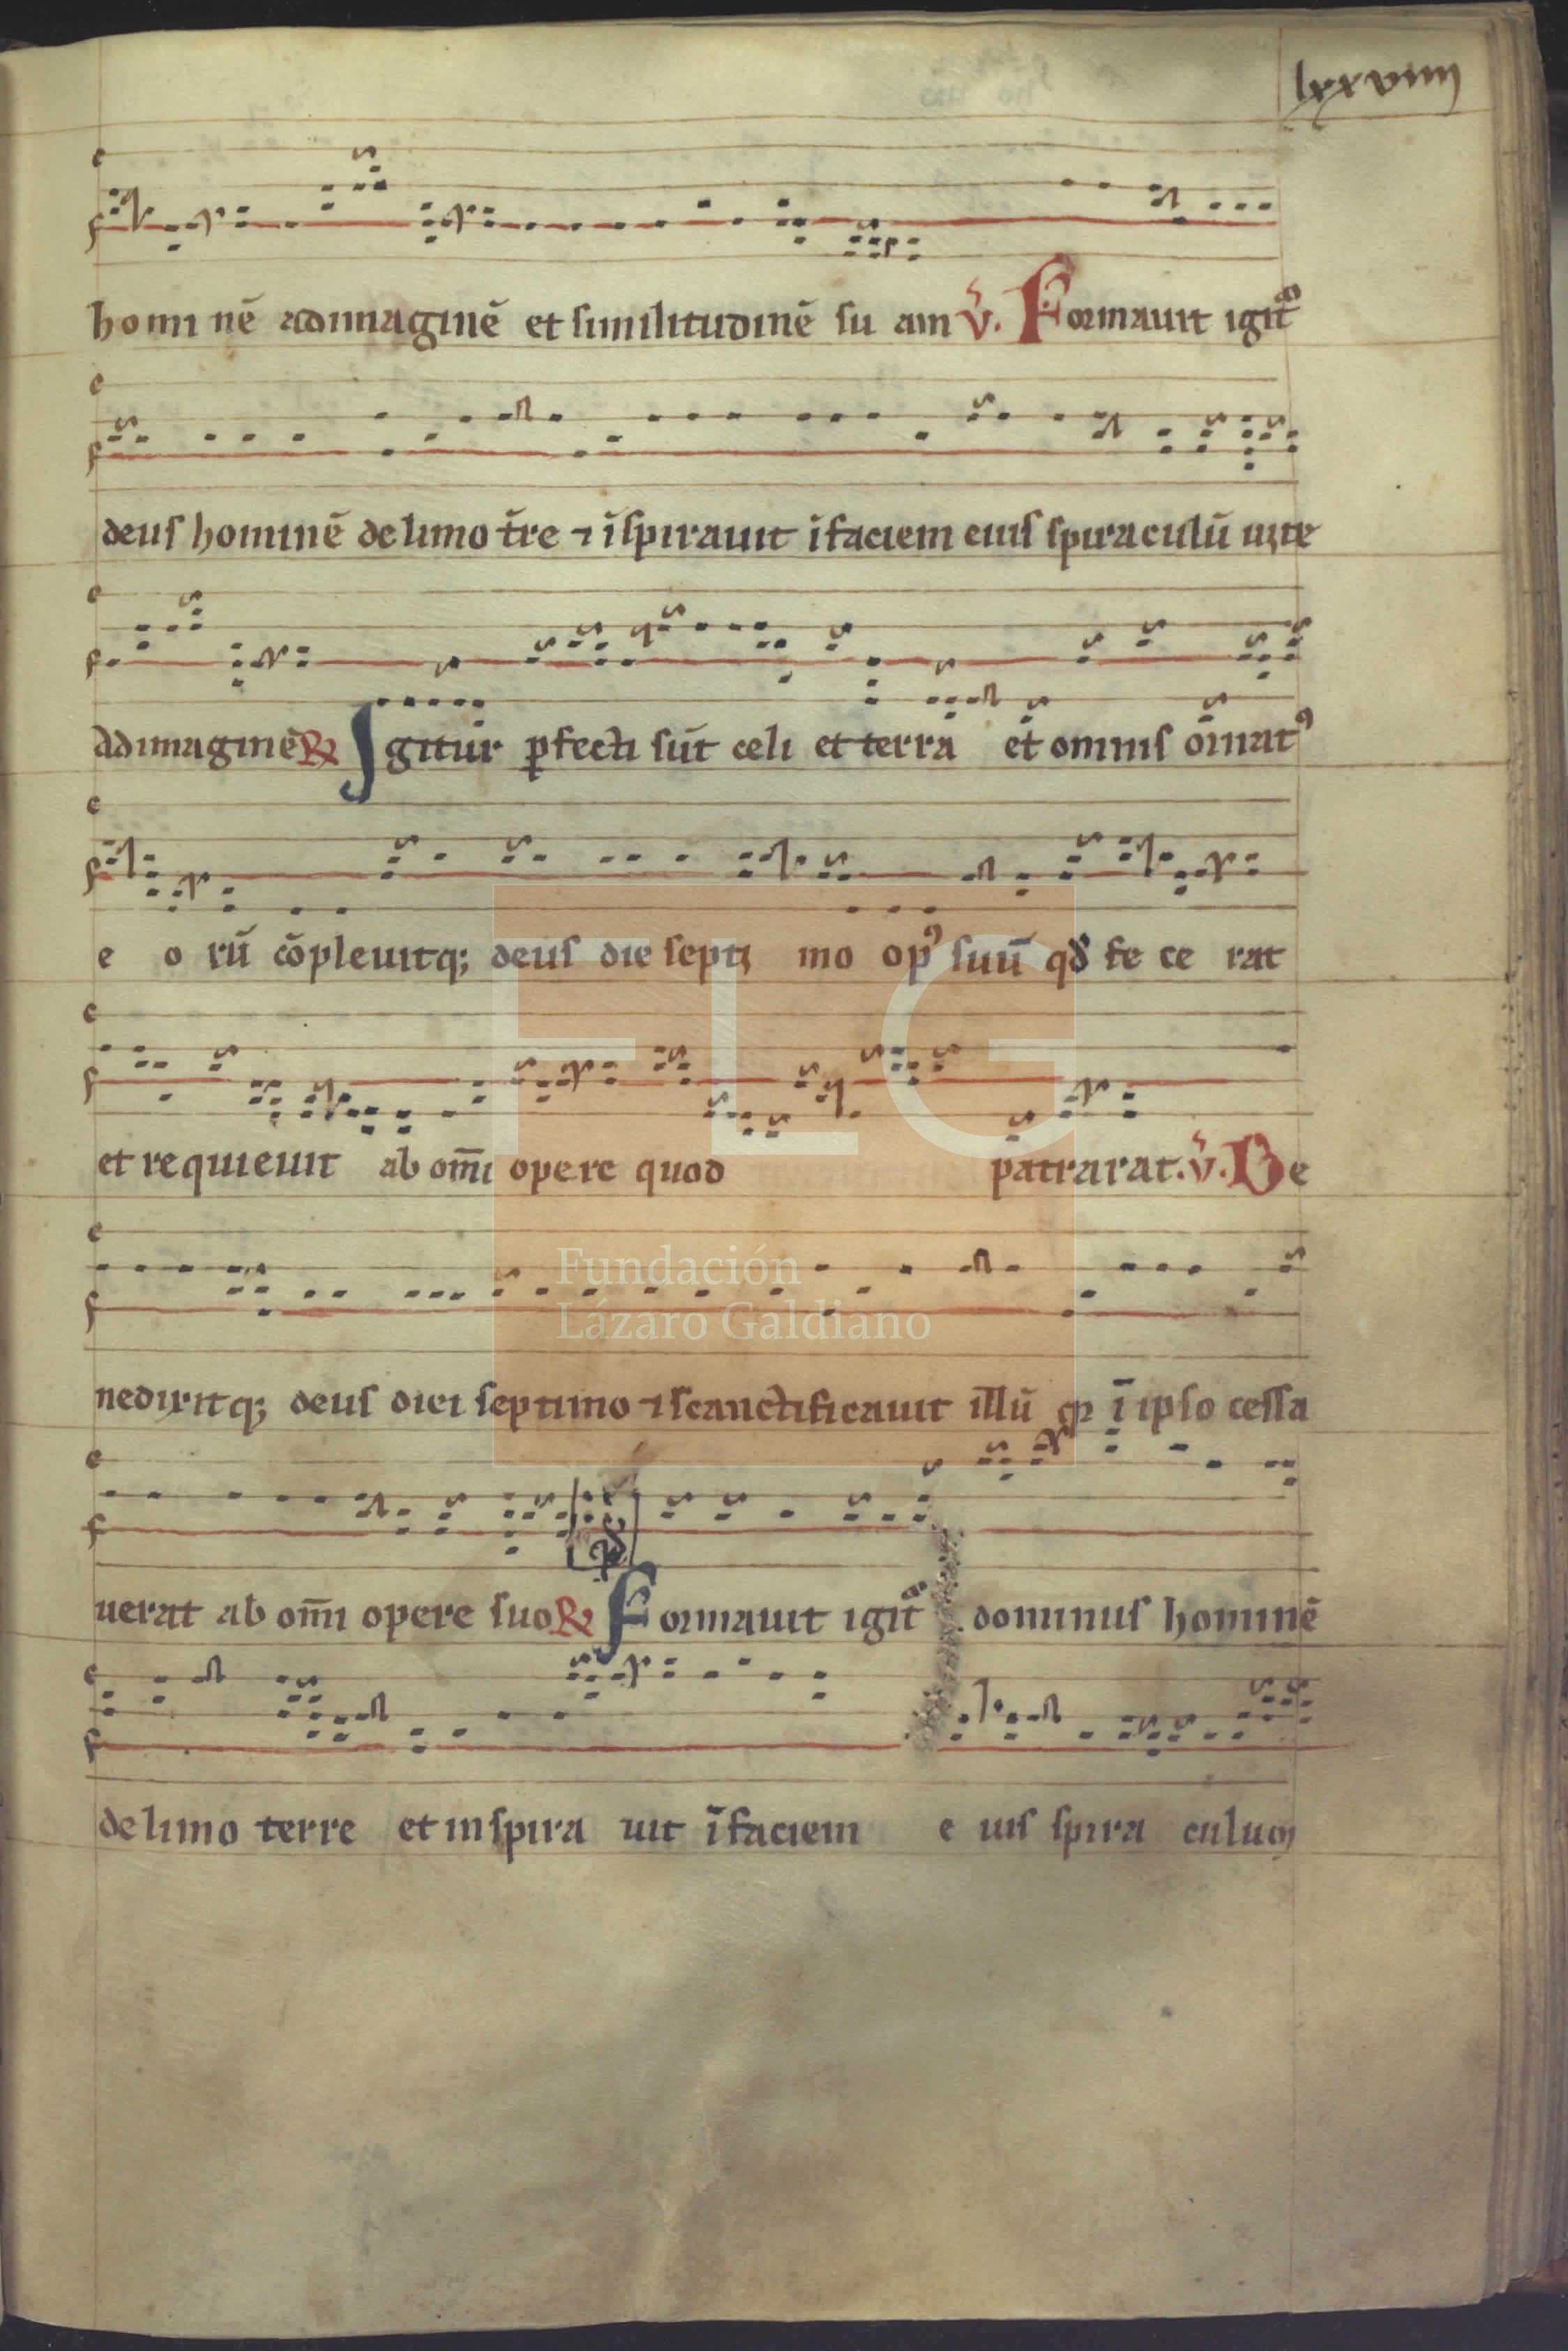 lxxviiij
homi nē adimaginē et similitudinē su am v̄. Formauit igit̄
deus hominē delimo t̄re ⁊ īspirauit īfaciem euis spiraculū uite
Adimaginē ℟ Igitur ꝑfecti sūt celi et terra et omnis ōrnatꝰ
e o rū cōpleuitq; deus die septi mo opꝰ suū qđ fe ce rat
et requieuit ab om̄i opere quod patrarat. v̄. Be
nedixitq; deus diei septimo ⁊ scanctificauit illū ī ipso cessa
uerat ab om̄i opere suo ℟ Formauit igit̄ dominus hominē
delimo terre et inspira uit īfaciem e uis spira culum
FLG
Fundación
Lázaro Galdiano